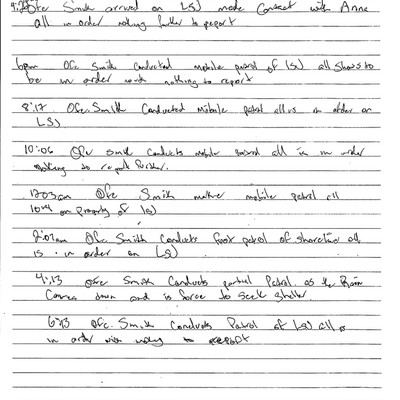 Ofc Smith arrived on LSJ made Contact with Anne
all in order nothing further to report
6pm Ofc Smith Conducted mobile patrol of LSJ all Shows to
be in order with nothing to report
8:17 Ofc. Smith Conducted Mobile Patrol all is in order on
LSJ
10:06 Ofc Smith Conducts mobile all is in order
nothing to report further.
Ofc Smith mobile patrol all
on Property of LSJ
2:07am Ofc. Smith Conducts foot patrol of shoreline all
is in order on LSJ
4:13 Ofc Smith Conducts partial Patrol as the Rain
Comes down and is force to seek shelter.
6:13 Ofc. Smith Conducts Patrol of LSJ all is
in order with nothing to report